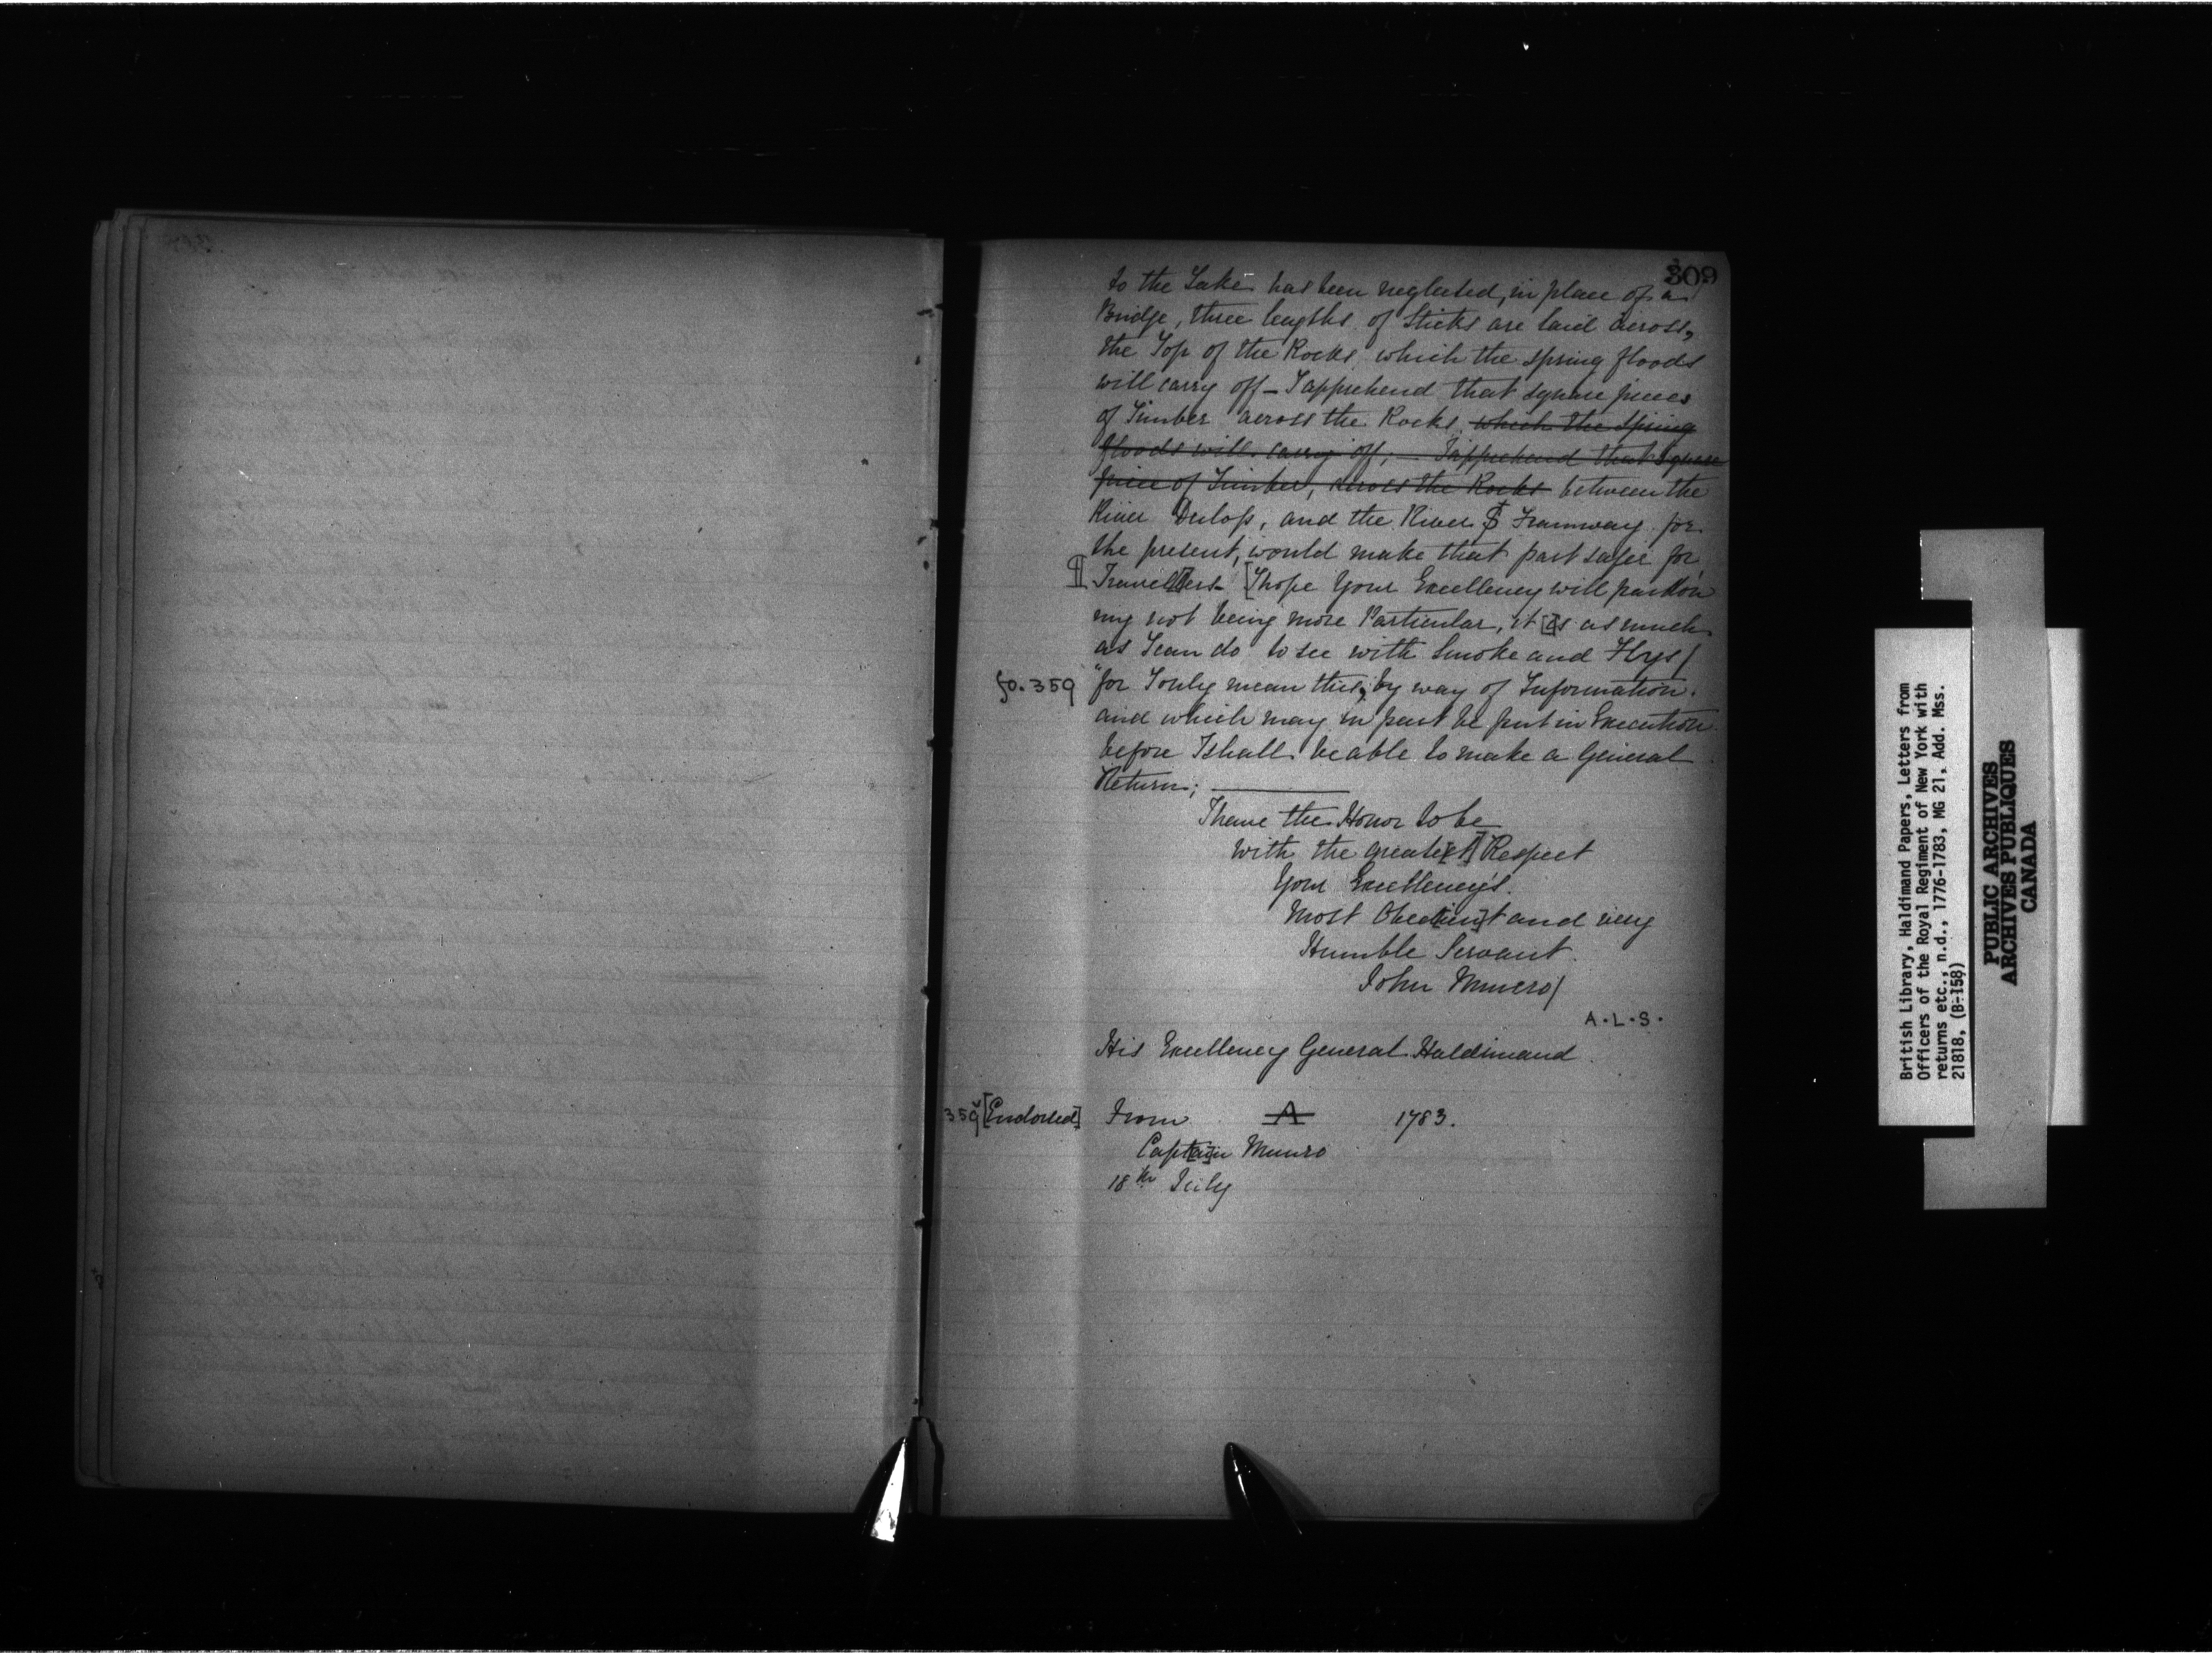 309
to the Lake has been neglected, in place of a
Bridge, three lengths of Sticks are laid across,
the Top of the Rocks which the spring floods
will carry off – I apprehend that square pieces
of Timber across the Rocks, which the Spring
floods will carry off; I apprehend that Square
piece of Timber, across the Rocks between the
River Delop, and the River $ Framway for
the present, would make that part safer for
¶ Travel[l]ers – [I hope Your Excellency will pardon
my not being more Particular, it [i]s as much
as I can do to see with Smoke and Flys/
fo. 359 "for I only mean this, by way of Information.
and which may in part be put in Execution
before I shall be able to make a General
Return;
I have the Honor to be
With the Greatest Respect
Your Excellency's.
Most Obed[ien]t and very
Humble Servant.
John Munro/
A.L.S.
His Excellency General Haldimand.
359 [Endorsed] From A 1783.
Capt[ai]n Munro
18th July
British Library, Haldimand Papers, Letters from
Officers of the Royal Regiment of New York with
returns etc., n.d., 1776-1783, MG 21, Add. Mss.
21818, (B-158)
PUBLIC ARCHIVES
ARCHIVES PUBLIQUES
CANADA